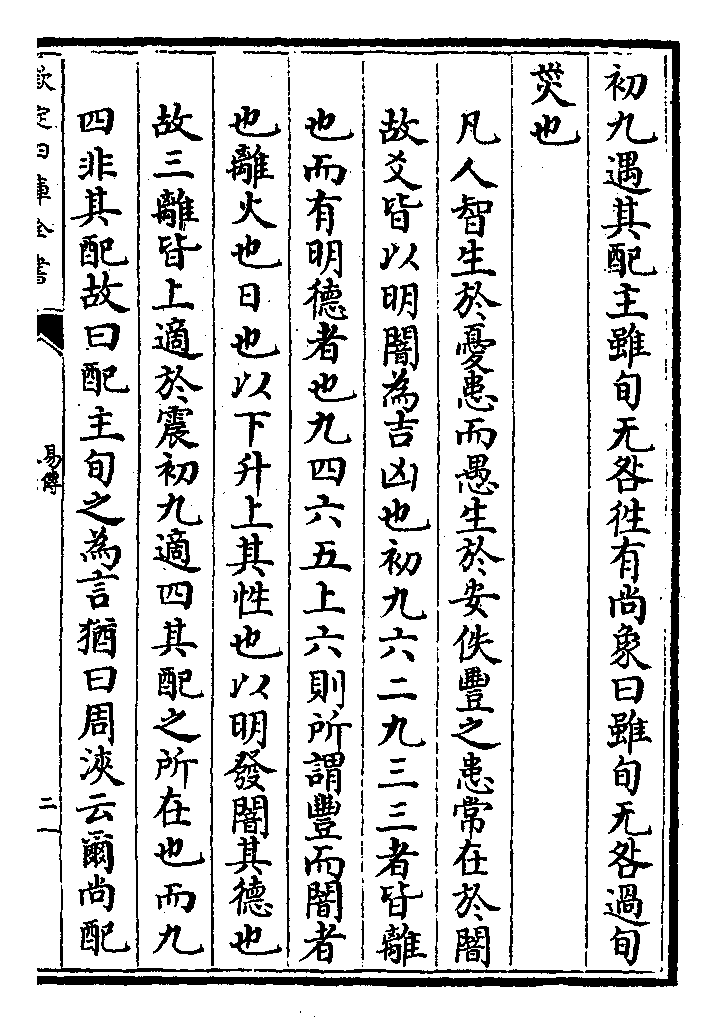 初九遇其配主雖旬无咎徃有尚象曰雖旬无咎過旬
災也
凡人智生於憂患而愚生於安佚豐之患常在於闇
故爻皆以明闇為吉凶也初九六二九三三者皆離
也而有明德者也九四六五上六則所謂豐而闇者
也離火也日也以下升上其性也以明發闇其德也
故三離皆上適於震初九適四其配之所在也而九
四非其配故曰配主旬之為言猶曰周浹云爾尚配
欽定四庫全書
易傳